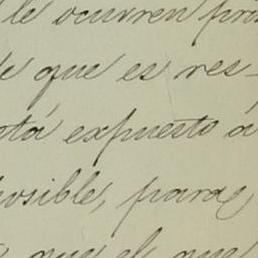 le ocurren
de que es res-
está expuesto á
posible, para
que el que